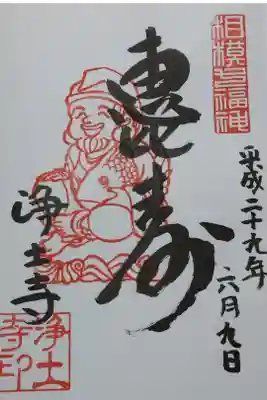 相模七福神
平成二十九年
六月九日
恵比寿
浄土寺
浄土
寺印